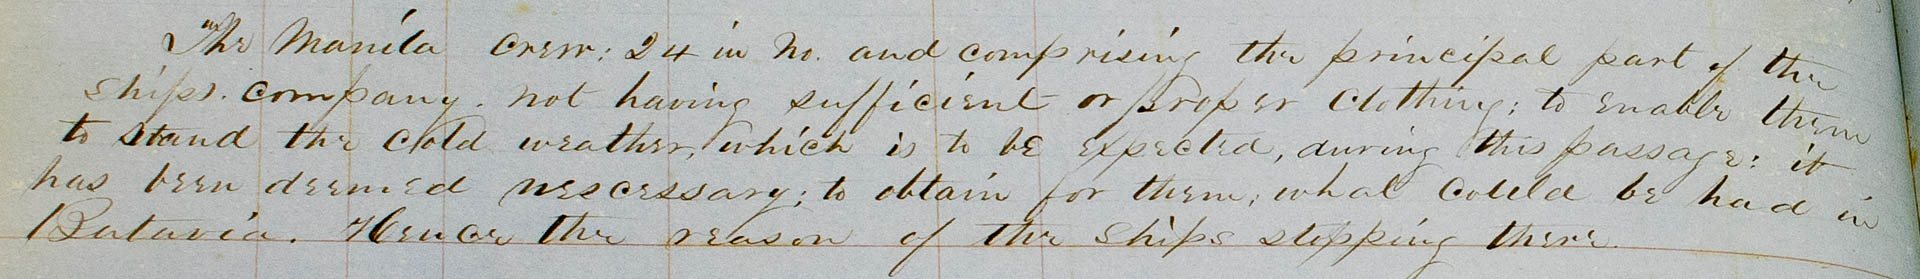 The Manila Crew; 24 in No. and comprising the principal part of the
ships. company. not having sufficient or proper Clothing; to enable them
to stand the Cold weather, which is to be expected, during this passage: it
has been deemed nescessary; to obtain for them; what Could be had in
Batavia. Hence the reason of the ships stopping there.